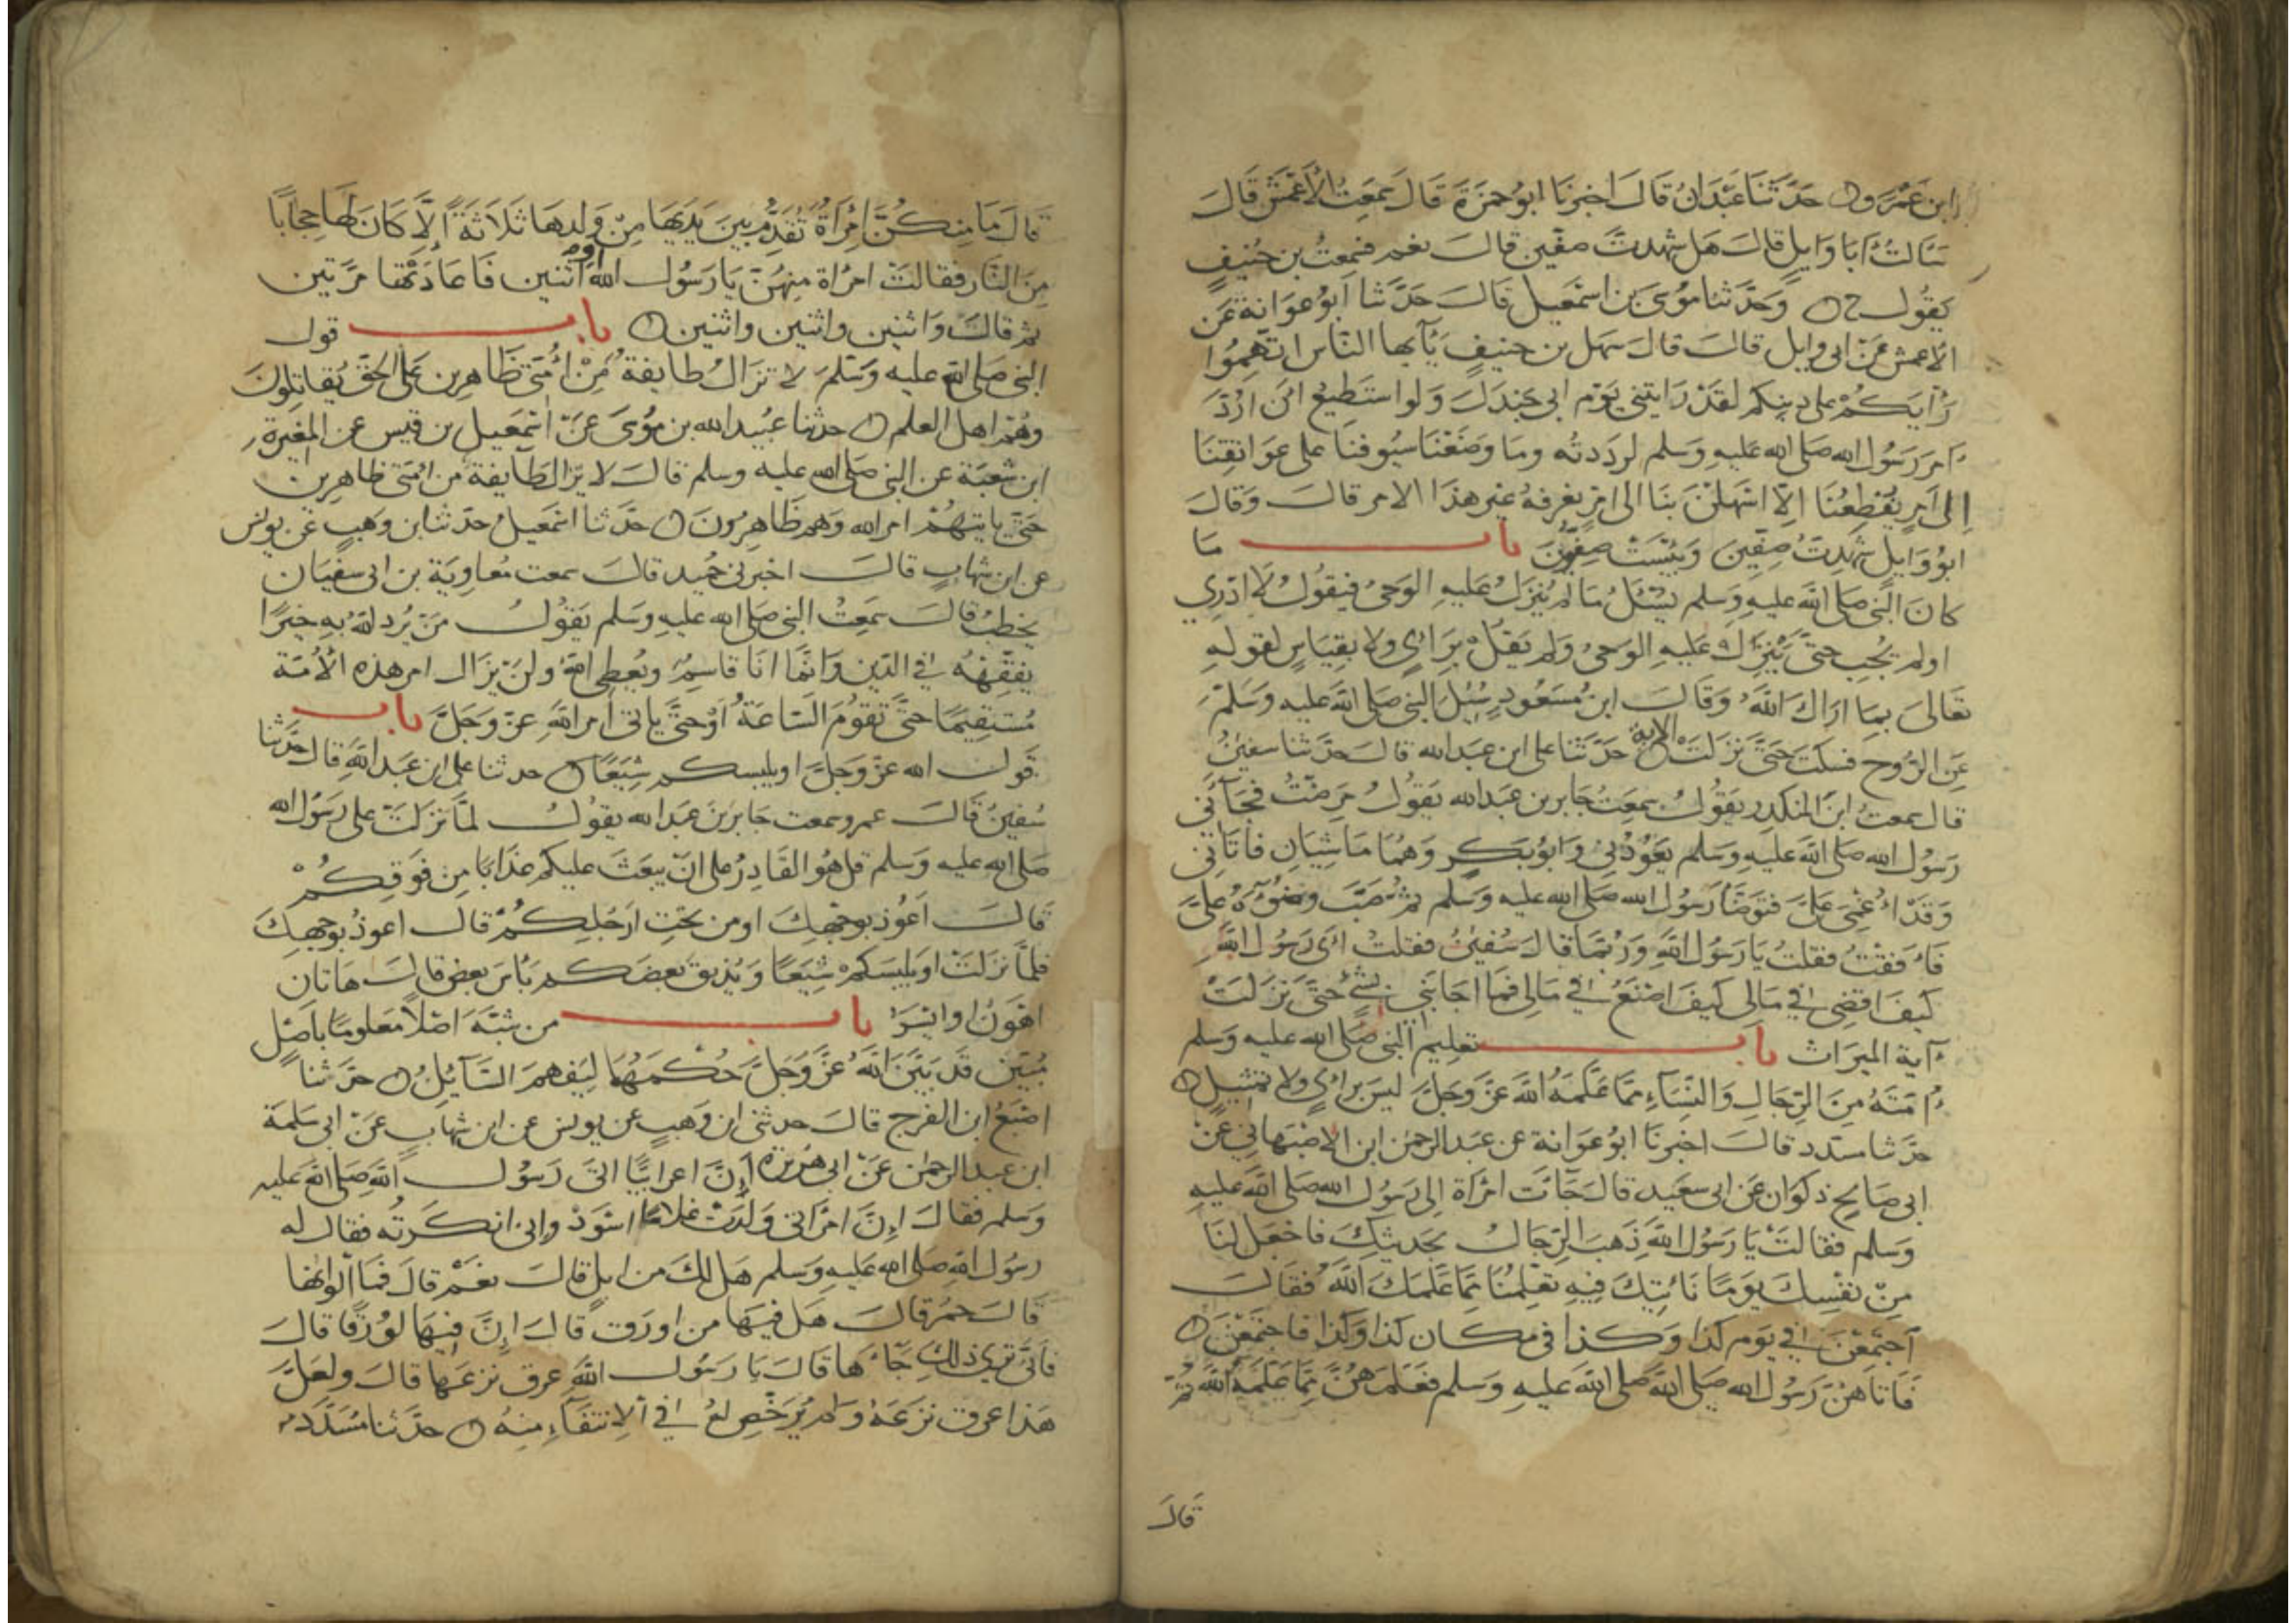 ابن عَمْرٍو حَدَّثَنَا عَبْدَانُ قَالَ اخبرنَا ابوُحمزَةَ قَالَ سمعتُ الأعْمَشَ قَالَ
سَالتُ أبَا وَايلٍ قالَ هَل شهدتَ صفّين قالَ نعم فسمعتُ بن حُنيفٍ
يَقُول ح وحَدَّثنا موُسَى بن اسمٰعيل قَالَ حَدَّثنا ابوُعوَانة عَن
الاعمش عَن ابى وايل قالَ قالَ سَهل بن حنيفٍ يَآيها النّاس اتّهِمُوا
رَأيَكمْ على دينكم لقَدْ رَايتنى يَوْم ابى جَندَل وَلو استَطيعُ انْ ارُدَّ
أمرَ رَسُول الله صَلى الله عَليهِ وَسَلم لردَدتُه وما وَضَعْنَا سيُوفنَا على عَوَاتقِنَا
إلى أمرٍ يُفْظِعُنَا إلّا اسْهَلنَ بنَا الى امْرٍ نعرفهُ غيرِ هذَا الامر قالَ وَقَالَ
ابوُ وَايل شَهِدتُ صِفّينَ وَبِئسَتْ صِفّونَ باب مَا
كانَ النَّبى صَلى الله عَليهِ وَسَلم يُسْئَلُ مَا لم يُنزَل عَليهِ الوَحىُ فيَقُولُ لَا ادْري
اولم يُجِب حتَّى يُنْزَل عَليهِ الوحىُ وَلم يَقُلْ بِرَأىٍ ولا بقِيَاسٍ لقولهِ
تَعَالىَ بِمَا ارَاكَ اللهُ وَقَالَ ابن مَسْعُودٍ سُئِلَ النبى صَلى الله عليه وَسَلمَ
عَنِ الرّوح فسَكَتَ حَتىَّ نزَلَتْ الاية حَدَّثنا على ابن عَبدالله قالَ حَدَّثنا سفينُ
قال سمعتُ ابنَ المُنكدِر يَقُولُ سمِعتُ جَابِر بن عَبدالله يَقُولُ مَرِضْتُ فجَآءَنى
رَسُول الله صَلى الله عَليهِ وَسَلم يَعُودُنِى وَابوُ بَكرٍ وَهُمَا مَاشِيَانِ فأتَانى
وَقَدْ اُغمِىَ عَلىَّ فتوَضَّأ رَسُول الله صَلى الله عليه وَسَلم ثم صَبّ وضُوءَهُ عَلىَّ
فَأفَقْتُ فقلتُ يَا رَسُول اللهِ وَرُبَّمَا قالَ سُفينُ فقلتُ اىْ رَسُول اللهِ
كيفَ اقضِى فى مَالى كيفَ اصْنَعُ فى مَالى فمَا اجَابَنى بشئ حتّى نزَلتْ
آية الميرَاث باب تعليم النبى صَلى الله عليه وَسَلم
أمّتَهُ مِنَ الرّجَالِ وَالنّسَآءِ ممّا عَلّمَهُ اللهُ عَزّ وجَلَّ ليسَ برأىٍ ولا تمثيلٍ
حَدّثنا مسَدد قالَ اخبرنَا ابوُعوَانة عن عبَد الرحمٰن ابن الاصْبَهانى عَنْ
ابى صَالحٍ ذكوَان عَن ابى سعَيد قالَ جَآءَت امْرَأة الى رَسُول الله صَلى الله عليهِ
وَسَلم فقالتْ يَا رَسُول اللهِ ذهَب الرّجَالُ بحَديثِكَ فاجعَل لنَا
مِنْ نفْسِكَ يوَمًا نَأتيكَ فيهِ تعَلّمُنَا ممّا عَلّمَكَ اللهُ فقَالَ
آجتَمعْنَ فى يَوم كذا وَكذا فى مكان كذا وَكذا فاجتمَعْنَ
فَاتَاهنّ رَسُول الله صَلى الله صَلى الله عَليهِ وَسَلم فعَلمَهُنّ ممّا عَلّمَهُ الله ثُمّ
قالَ
قالَ مَا مِنكنَّ امْرَأةٌ تُقَدّمُ بينَ يَدَيهَا مِنْ وَلدهَا ثَلاثَةً إلّا كَانَ لهَا حِجَابًا
مِنَ النّار فقالتْ امْرَاة مِنهنّ يَا رَسُول الله أو اثنين فَاعَادَتهَا مرّتين
ثم قالَ وَاثنين واثنين واثنين باب قول
النبى صَلى الله عليه وَسَلم لا تزَالُ طايفةٌ مِنْ أُمّتى ظَاهِرين عَلى الحَق يُقاتِلونَ
وهُمْ اهل العلم حدثنا عبُيد الله بن موُسى عَنْ اسْمعيل بن قيس عن المغيرة
ابن شعبَة عن النبى صَلى الله عليه وسلم قالَ لا يزَال طَآيفة من امّتى ظاهِرين
حَتّى ياتيَهُمْ امر الله وَهم ظَاهِرُونَ حدَّثنا اسْمعيل حدّثنا بن وَهبٍ عَن يونس
عن ابن شهابٍ قالَ اخبرنى حُميد قالَ سمعت مُعاوِيَة بن ابى سفيَان
يخطبُ قالَ سَمِعتُ النبى صَلى الله عليهِ وَسَلم يَقُولُ مَنْ يُرد اللهُ بهِ خيرًا
يفَقّههُ فى الدّين وَانّمَا انَا قاسِمٌ ويُعطِى اللهُ ولنْ يزَال امر هذه الأُمّة
مُستقيمًا حتّى تقُومَ السّاعَةُ أوْ حتّى ياتى أمرُ اللهِ عزّ وَجلّ باب
قول الله عزّ وَجَلّ اويلبسكم شِيَعًا حدثنا على ابن عَبدالله قال حَدّثنا
سُفينُ قالَ عمرو سمعت جَابِرَ بنَ عبَدالله يقُولُ لمّا نزلتْ على رَسُول الله
صَلى الله عليه وَسَلم قل هُوَ القَادِرُ على انْ يبعَثَ عليكم عَذَابًا مِن فَوقِكُمْ
قالَ اعَوُذ بوجْهِكَ اومِن تحتِ ارْجُلِكمْ قالَ اعوذ بوجهِكَ
فلمّا نزَلتْ اويلبِسَكمْ شِيَعًا وَيُذيق بعضَكم بَأسَ بعضٍ قالَ هَاتان
اهْوَنُ او ايْسَرُ باب من شبّهَ اصْلاً مَعلومًا بأصْل
مُبيّن قد بَيّنَ اللهُ عَزّ وَجَلّ حُكمَهُمَا ليَفهمَ السّآئِلُ حَدّثنا
اصْبَغُ ابن الفرج قالَ حدثنى ابن وَهبٍ عن يونس عن ابن شهابٍ عَنْ ابى سَلمة
ابن عبد الرحمٰن عَنْ ابى هُرَيرَة أنّ اعرابيًّا اتَى رَسُول اللهِ صَلى الله عليه
وَسَلم فقالَ إنّ امْرَأتى وَلدَتْ غلامًا اسْوَدْ وإنى انكَرتُه فقال له
رسُول الله صَلى الله عليه وَسَلم هَل لكَ من ابلٍ قالَ نعَمْ قالَ فمَا ألوَانهَا
قالَ حمُرٌ قالَ هَل فيهَا من اورَق قالَ إنّ فيهَا لوُرْقًا قالَ
فَأنّى تُرى ذلك جَآءَهَا قالَ يَا رَسُول اللهِ عرق نزعَهَا قالَ ولعَلّ
هَذا عرق نزَعَهُ وَلم يُرَخّص لهُ فى الانتفَآءِ منِهُ حدّثنا مُسَدّد